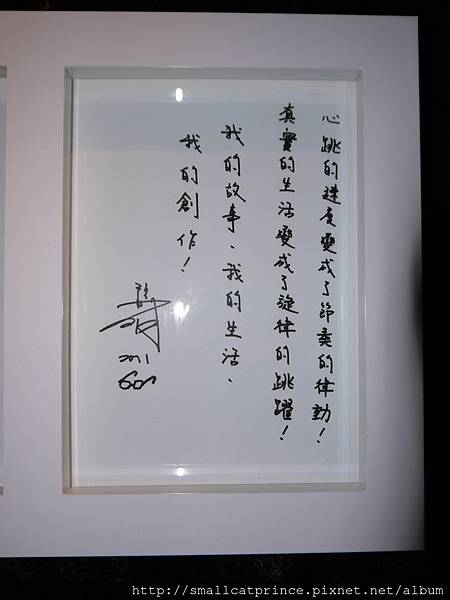 心跳的速度變成了節奏的律動！
真實的生活變成了旋律的跳躍！
我的故事、我的生活、
我的創作！
2011
http://smallcatprince.pixnet.net/album